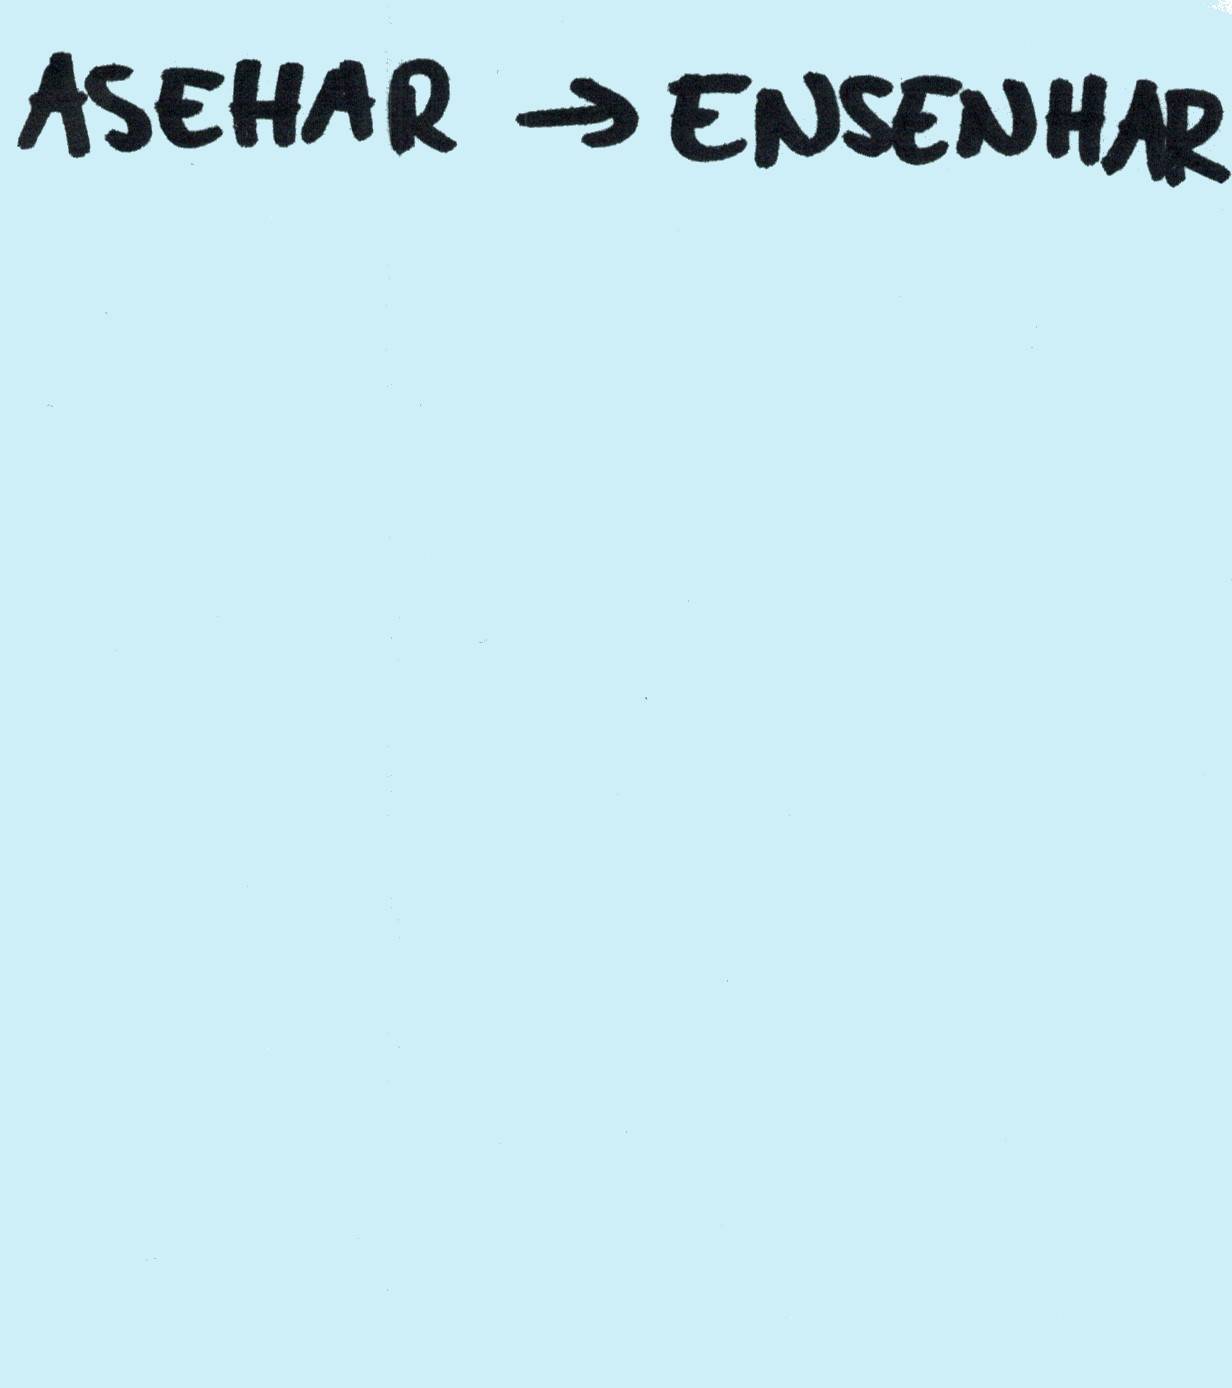 ASEHAR → ENSENHAR